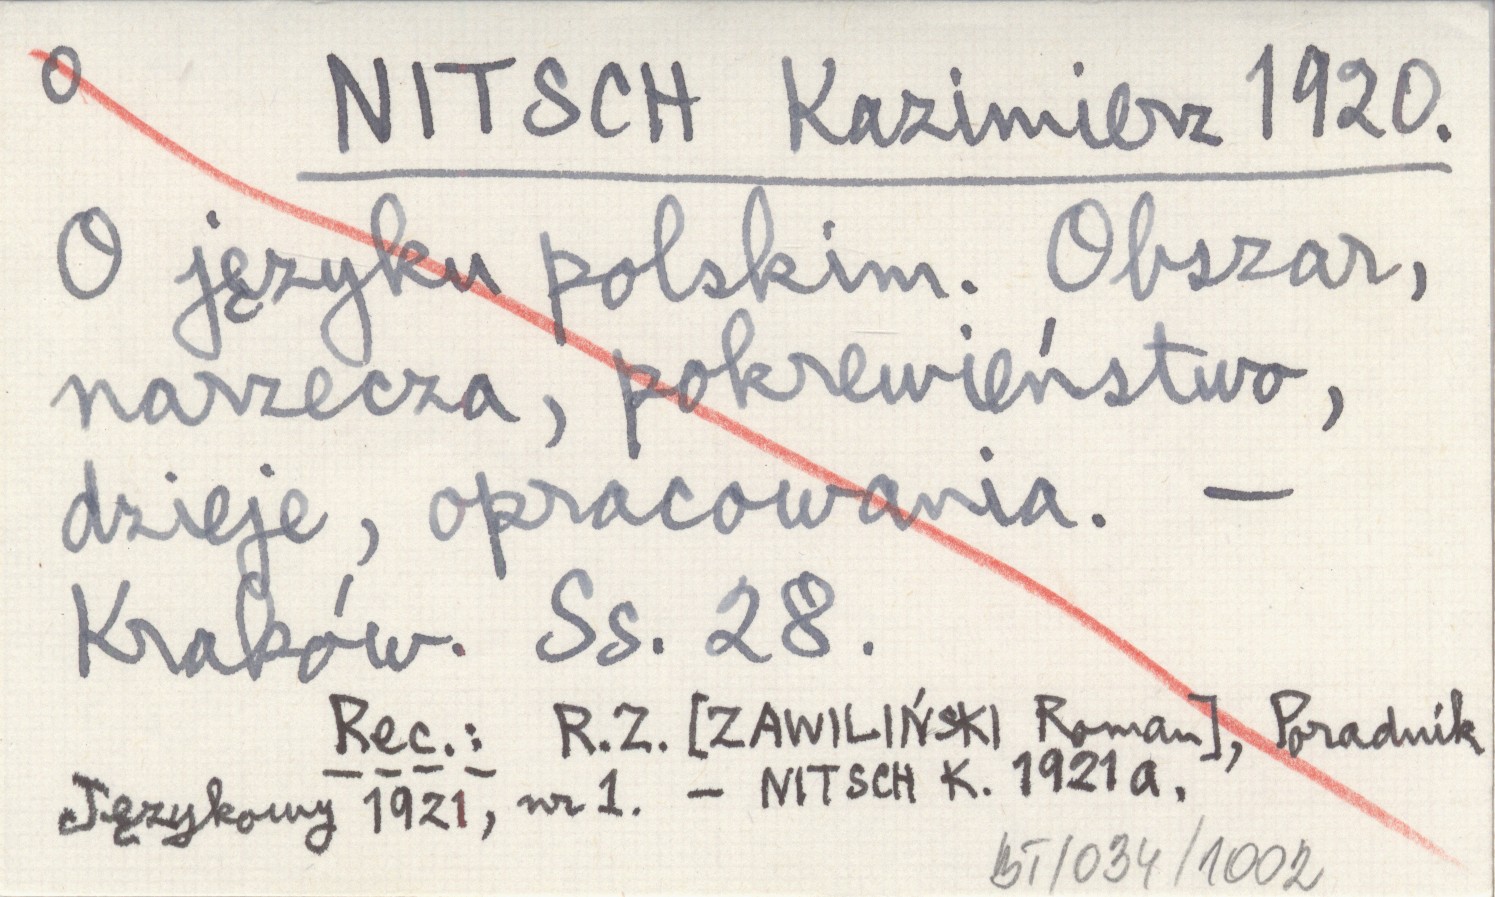 O NITSCH Kazimierz 1920.
O języku polskim. Obszar,
narzecza, pokrewieństwo,
dzieje, opracowania. —
Kraków. Ss. 28.
Rec.: R.Z. [ZAWILIŃSKI Roman], Poradnik
Językowy 1921, nr 1. — NITSCH K. 1921a.
BT/034/1002